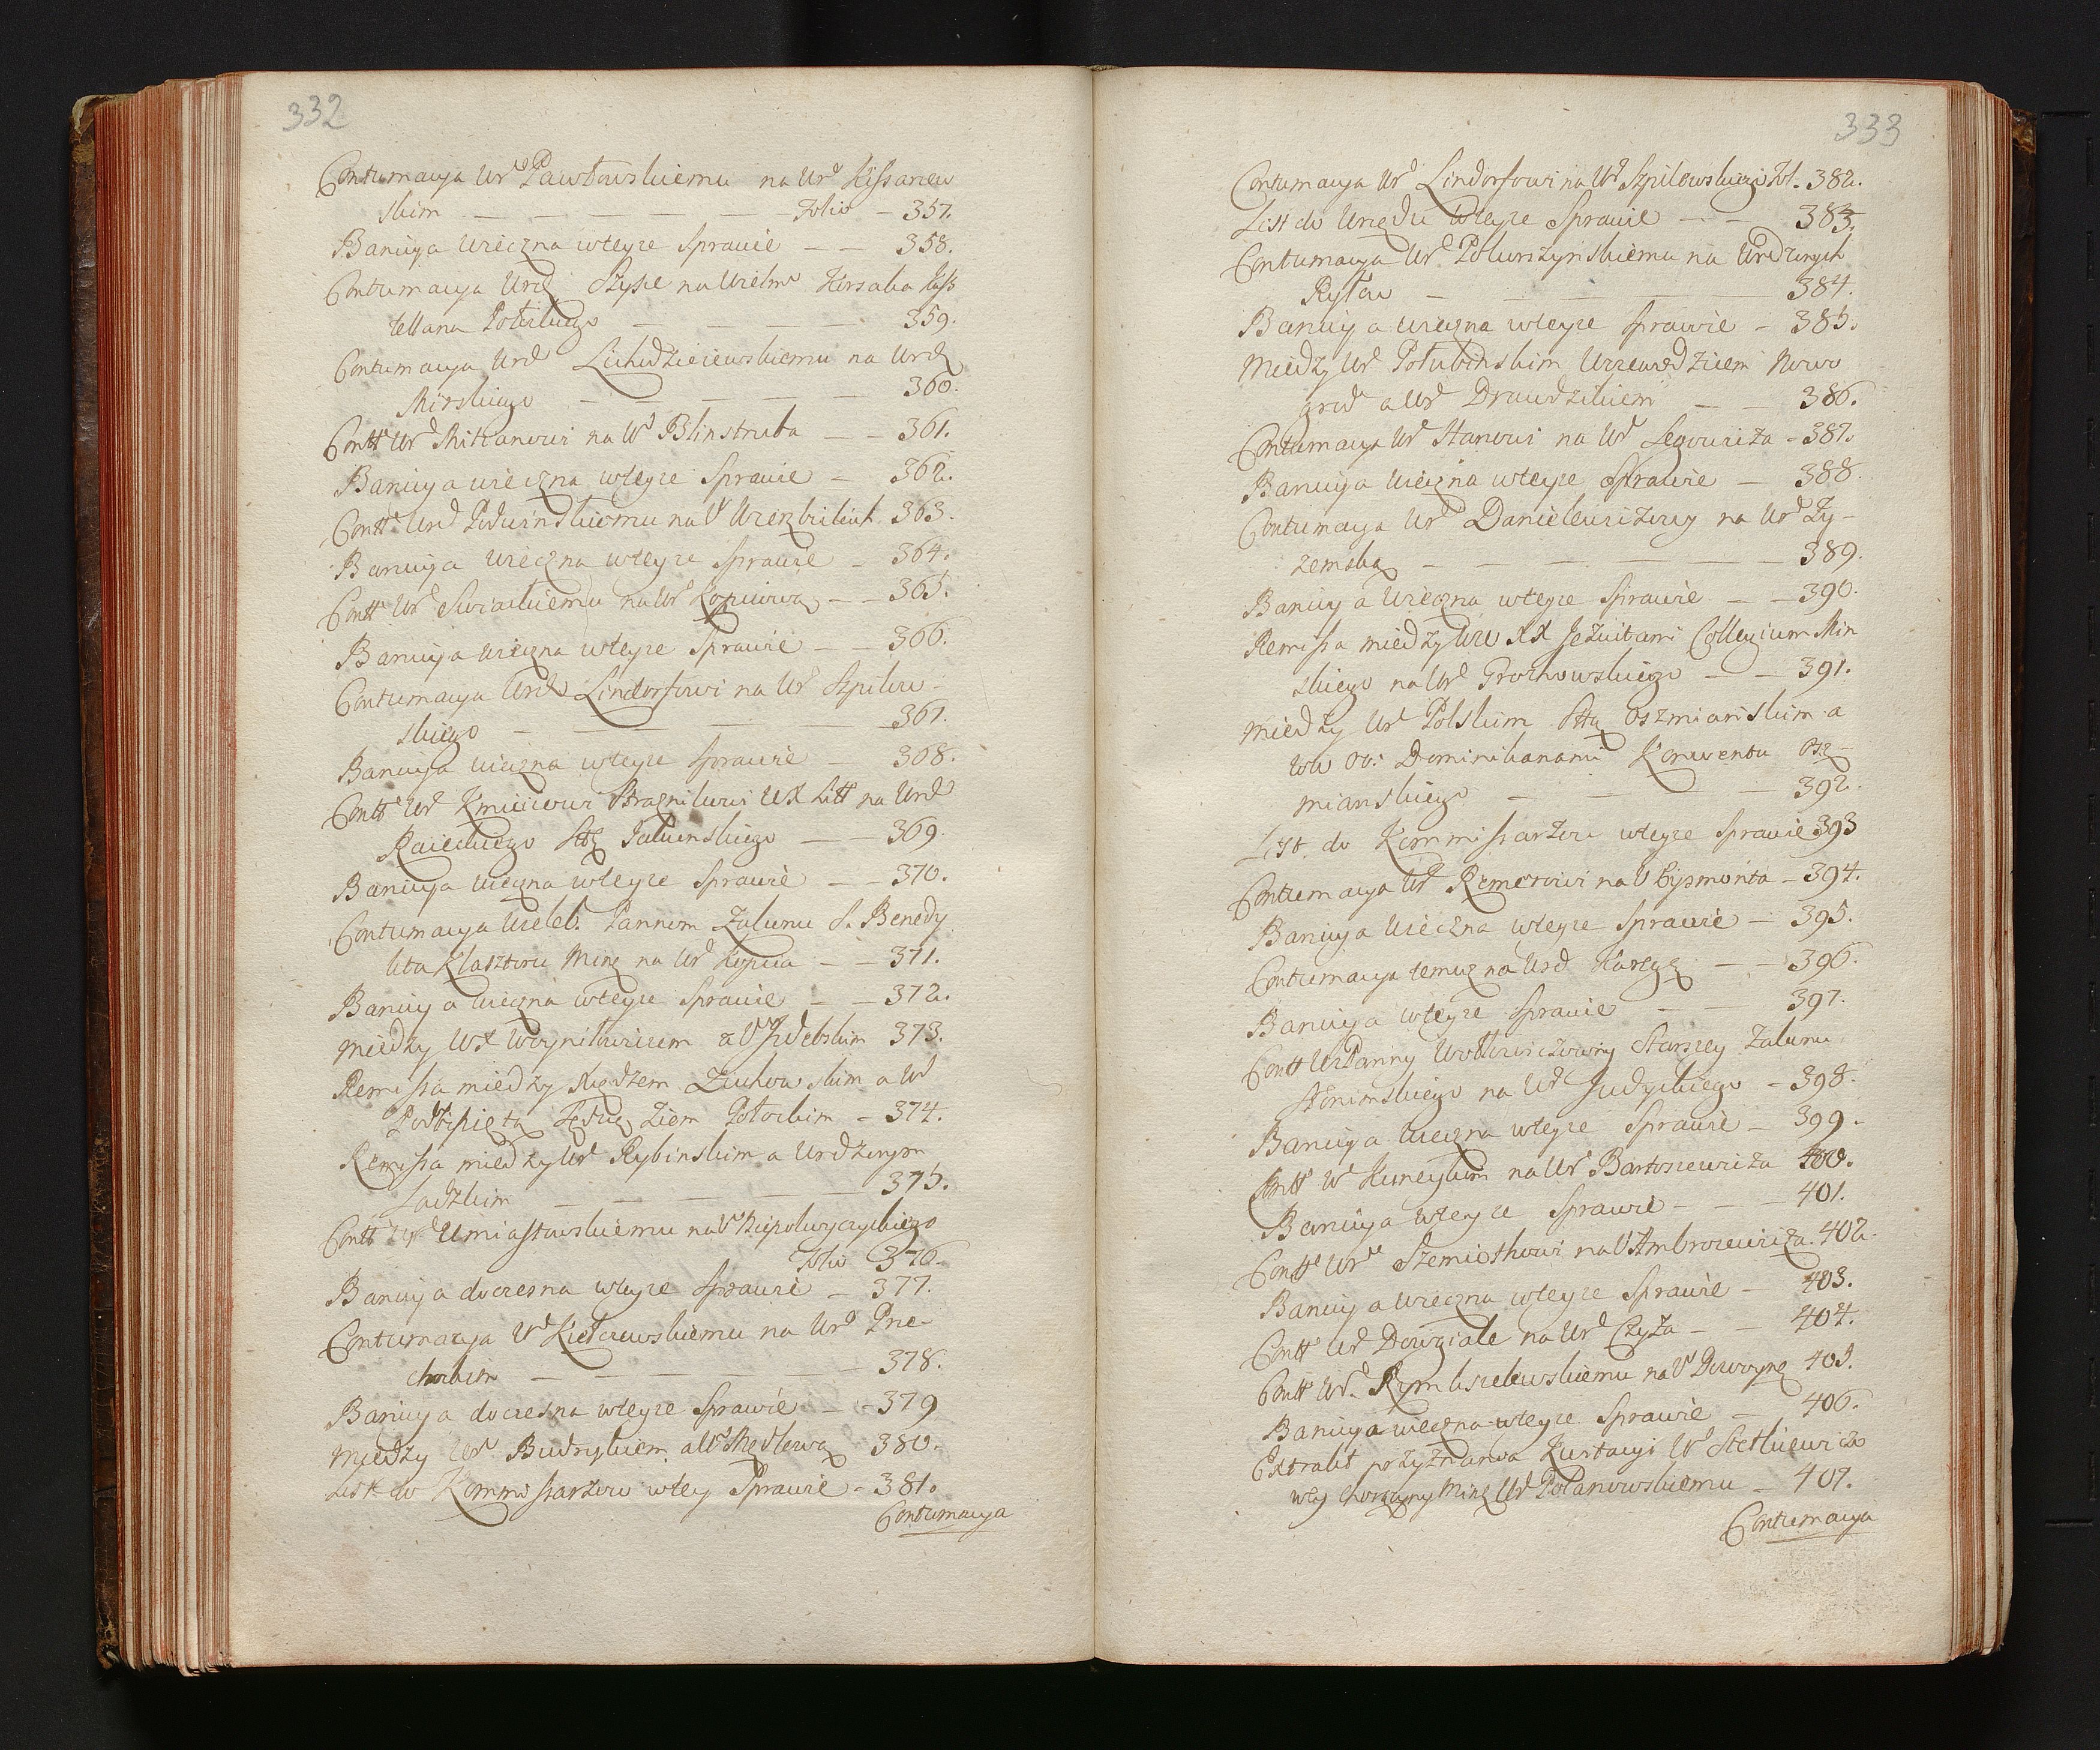 332
Contumacya Urd Pawłowskiemu na Urd Kissarzew
skim — — — — — — folio — 357.
Banicya wieczna wteyze Sprawie — — 358.
Contumacya Urd Szysze na Wielmo Korsaka Kasz
tellana Połockiego — — — — 359.
Contumacya Urd Lichodzieiewskiemu na Urd
Mirskiego — — — — — 360.
Contt Urd Mitzanowi na Ud Blinstruba — — 361.
Banicya wieczna wteyze Sprawie — 362.
Contt Urd Podwinskiemu na U Wierzbickich 363.
Banicya wieczna wteyze Sprawie — 364.
Contt Urd Swiackiemu na Ur Kopciową — — 365.
Banicya wieczna wteyze Sprawie — — 366.
Contumacya Urd Lindorfowi na Ur Szpilew-
skiego — — — — 367.
Banicya wieczna wteyze Sprawie — 368.
Contt Urd Kmicicowi Stragnikowi WX Litt na Urd
Raieckiego Sttę — 369.
Banicya wieczna wteyze Sprawie — — 370.
Contumacya Wieleb. Pannom Zakonu S. Benedy
kta Klasztoru Minn na Ur Kopcia — — 371.
Banicya wieczna wteyze Sprawie — — 372.
Między WX Woyniłowiczem a Ur Jzdebskim 373.
Remissa między Xiędzem Zuchowskim a Ud
Podbipiętą Sędzią Ziem Połockim — 374.
Remissa między Ur Rybinskim a Urdzonym
Ladzkim — — — — 375.
Contt Ur Umiastowskiemu na U
folio 376.
Banicya doczesna wteyze Sprawie — 377.
Contumacya Ud Kiełczewskiemu na Urd Prze-
chockim — — — — — 378.
Banicya doczesna wteyze Sprawie — — 379
Między Ur Budryckiem a Ur 380.
List do Kommissarzow wtey Sprawie — 381.
Contumacya
333
Contumacya Urd Lindorfowi na Ur Szpilewskiego fol — 382.
List do Urzędu wteyze Sprawie — — 383.
Contumacya Ur Pokurszynskiemu na Urdzonych
Ryłow — — — — — 384.
Banicya wieczna wteyze Sprawie — 385.
Między Ur Połubinskim Wojewodzicem Nowo
grod a Urd Drawdzikiem — — 386.
Contumacya Urd Stanowi na Ur Legowicza — 387.
Banicya wieczna wteyze Sprawie — 388.
Contumacya Urd Danielewiczowy na Urd Zy-
zemską — — — — — — 389.
Banicya wieczna wteyze Sprawie — — 390.
Remissa między Ww XX Jezuitami Collegium Min
skiego na Urd Grothowskiego — — 391.
Między Ur Polskim Sttą Oszmianskim a
Ww OO: Dominikanami Konwentu Osz-
mianskiego — — — 392.
List. do Kommissarzow wteyze Sprawie 393
Contumacya Ur Remerowi na U Eysmonta — 394.
Banicya wieczna wteyze Sprawie — 395.
Contumacya temuz na Urd — — 396.
Banicya wteyze Sprawie — — 397.
Contt Panny Wołłowiczowny Starszey Zakonu
Słonimskiego na Urd Judyckiego — 398.
Banicya wieczna wteyze Sprawie — 399.
Contt W na Ur Bartoszewicza 400.
Banicya wteyze Sprawie — — — 401.
Contt Urd Szemiothowi na U Ambrozewicza. 402.
Banicya wieczna wteyze Sprawie — 403.
Contt Ur Dowgiale na Urd Czyża — — 404.
Contt Urd Rymkszelewskiemu na U Dowoynę 405.
Banicya wieczna wteyze Sprawie — 406.
Extrakt przyznania Kwitacyi Ur Stetkiewicza
wty Chorążyny Minn Ur Połanowskiemu — 407.
Contumacya